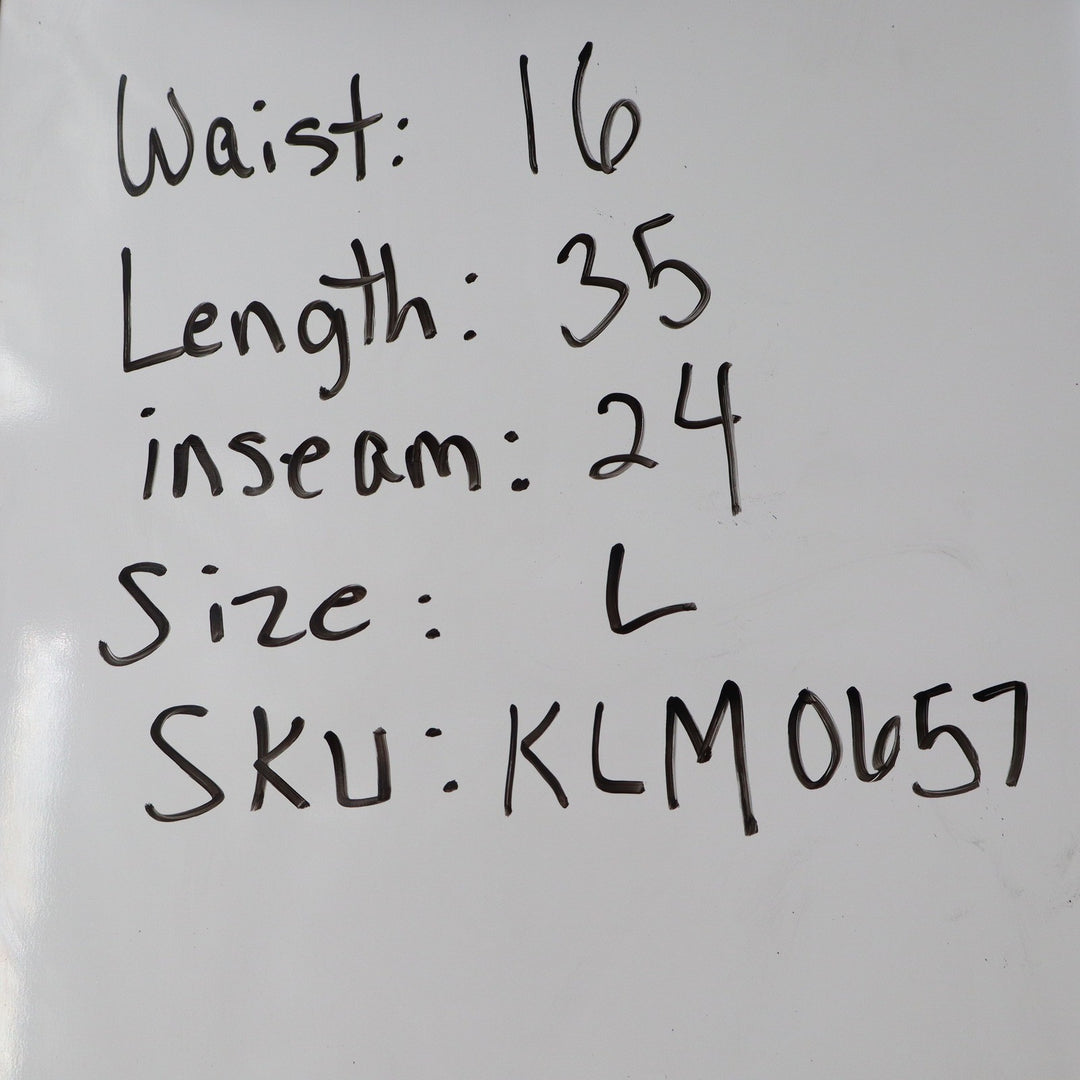 Waist: 16
Length: 35
inseam: 24
Size: L
SKU: KLM0657